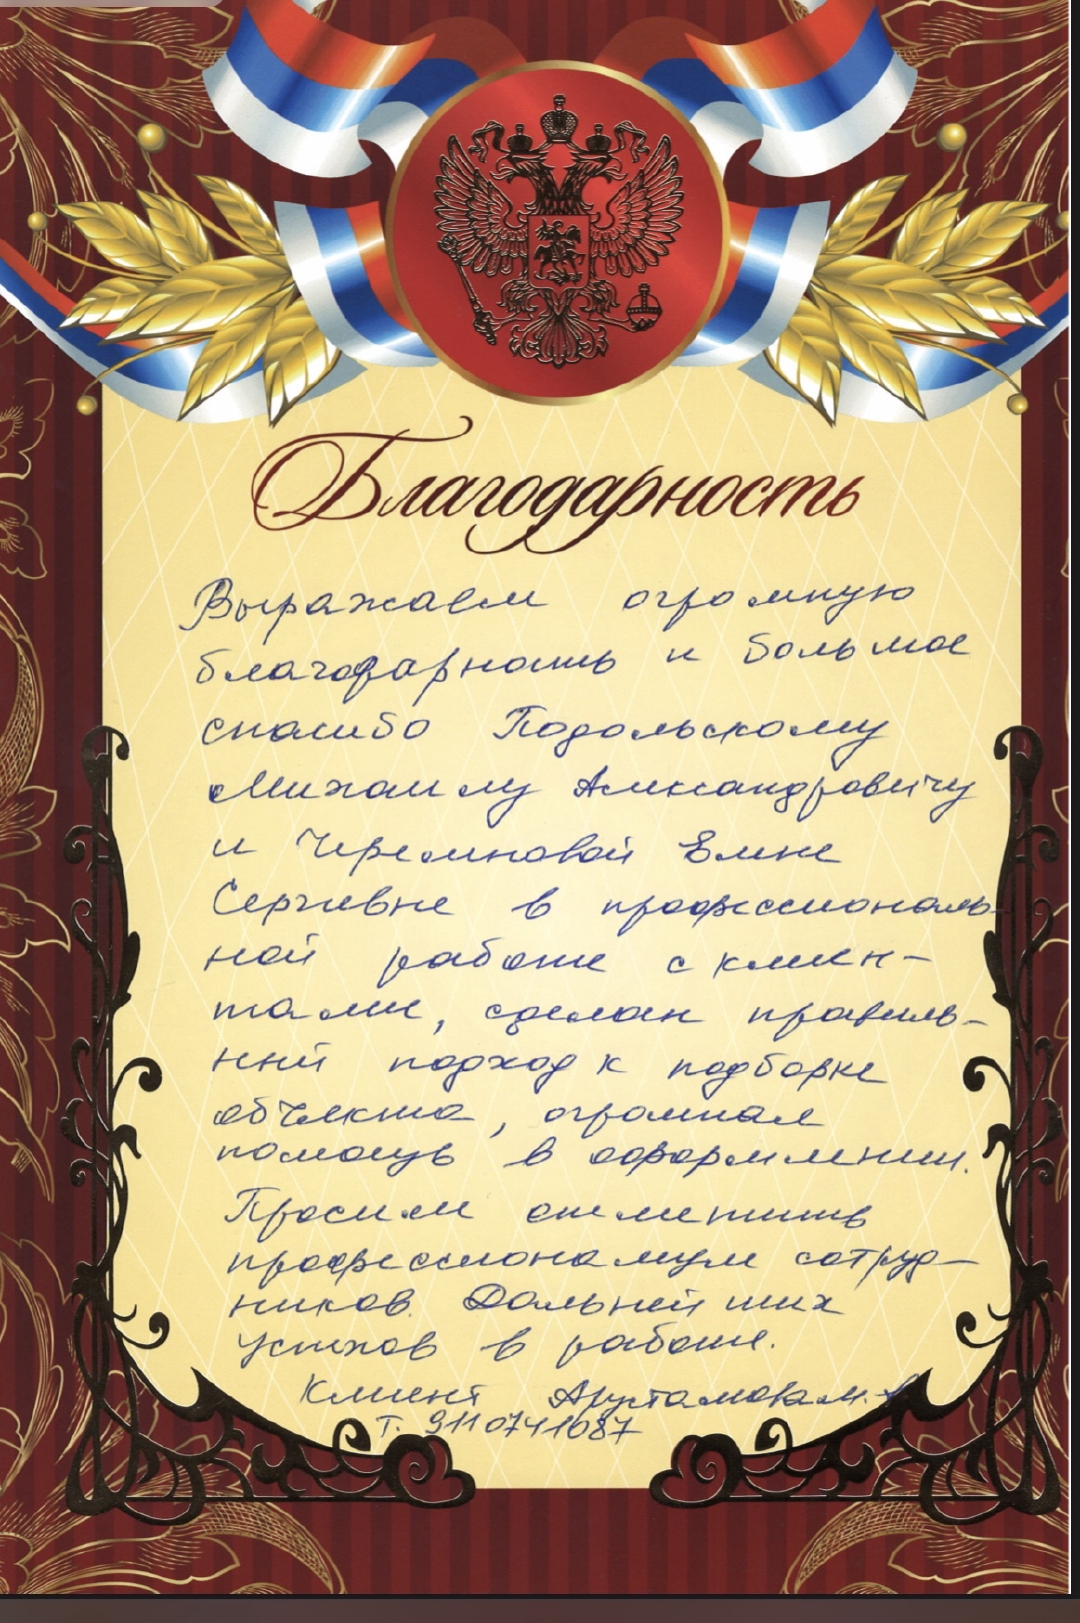 Благодарность
Выражаем огромную
благодарность и большое
спасибо Подольскому
Михаилу Александровичу
и Черемновой Елене
Сергеевне в профессиональ-
ной работе с клиен-
тами, сделан правиль-
ный подход к подборке
объекта, огромная
помощь в оформлении.
Просим отметить
профессионализм сотруд-
ников. Дальнейших
успехов в работе.
Клиент Арутамова
т. 9110741087